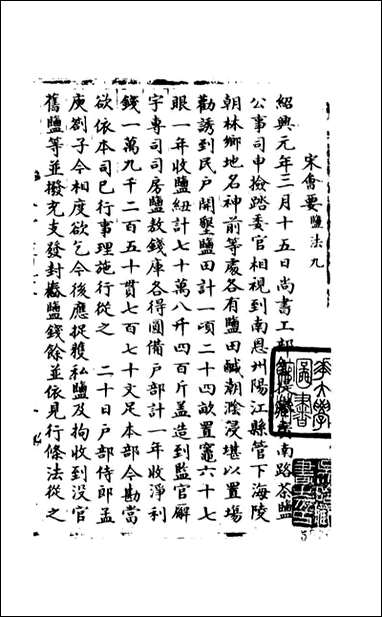 宋會要 鹽法九
紹興元年三月十五日尚書工部
南路茶鹽
公事司申檢踏委官相視到南恩州陽江縣管下海陵
朝林鄉地名神前等處各有鹽田鹹潮滲浸堪以置場
勸誘到民戶開墾鹽田計一頃二十四畝置竈六十七
眼一年收鹽紐計七十萬八千四百斤蓋造到監官廨
宇專司司房鹽敖錢庫各得圓備戶部計一年收淨利
錢一萬九千二百五十貫七百七十文足本部今勘當
欲依本司已行事理施行從之 二十日戶部侍郎孟
庾劄子今相度欲乞今後應捉獲私鹽及拘收到沒官
舊鹽等並撥充支發封樁鹽錢餘並依見行條法從之